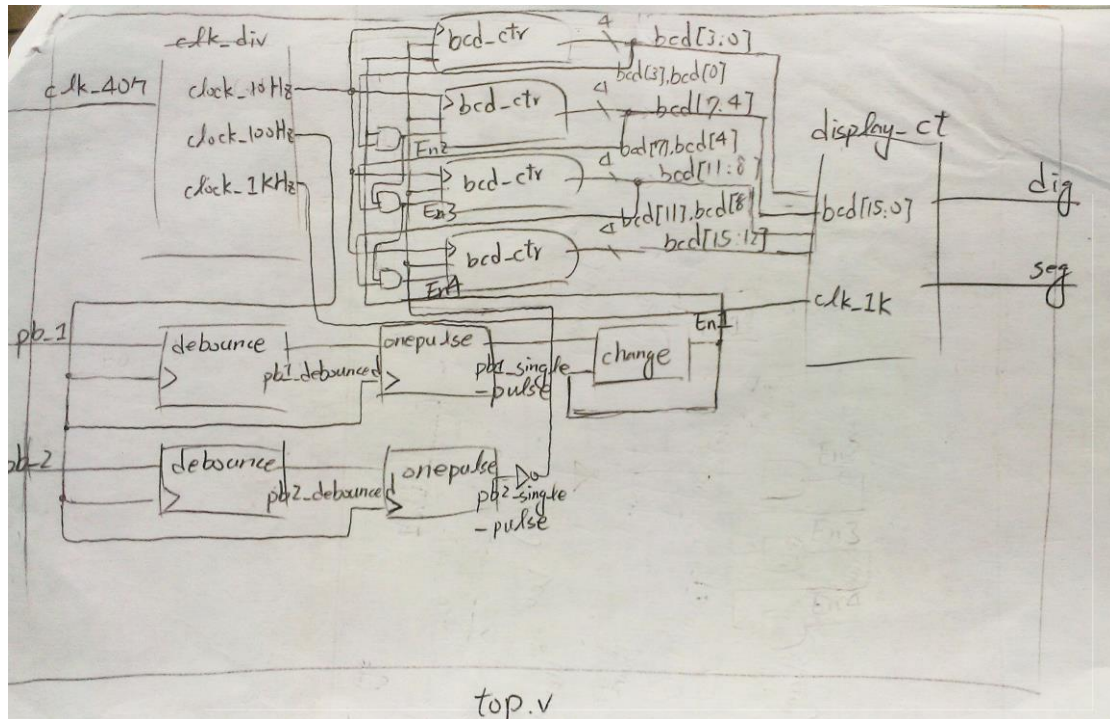 clk_div
clk_40M
clock_10Hz
clock_100Hz
clock_1kHz
bcd_ctr
4
bcd[3:0]
bcd[3],bcd[0]
bcd_ctr
4
bcd[7:4]
En2
bcd[7],bcd[4]
bcd_ctr
4
bcd[11:8]
En3
bcd[11],bcd[8]
bcd_ctr
4
bcd[15:12]
En4
display_ct
bcd[15:0]
clk_1k
dig
seg
pb_1
debounce
pb1_debounced
onepulse
pb1_single
-pulse
change
En1
pb_2
debounce
pb2_debounced
onepulse
pb2_single
-pulse
top.v